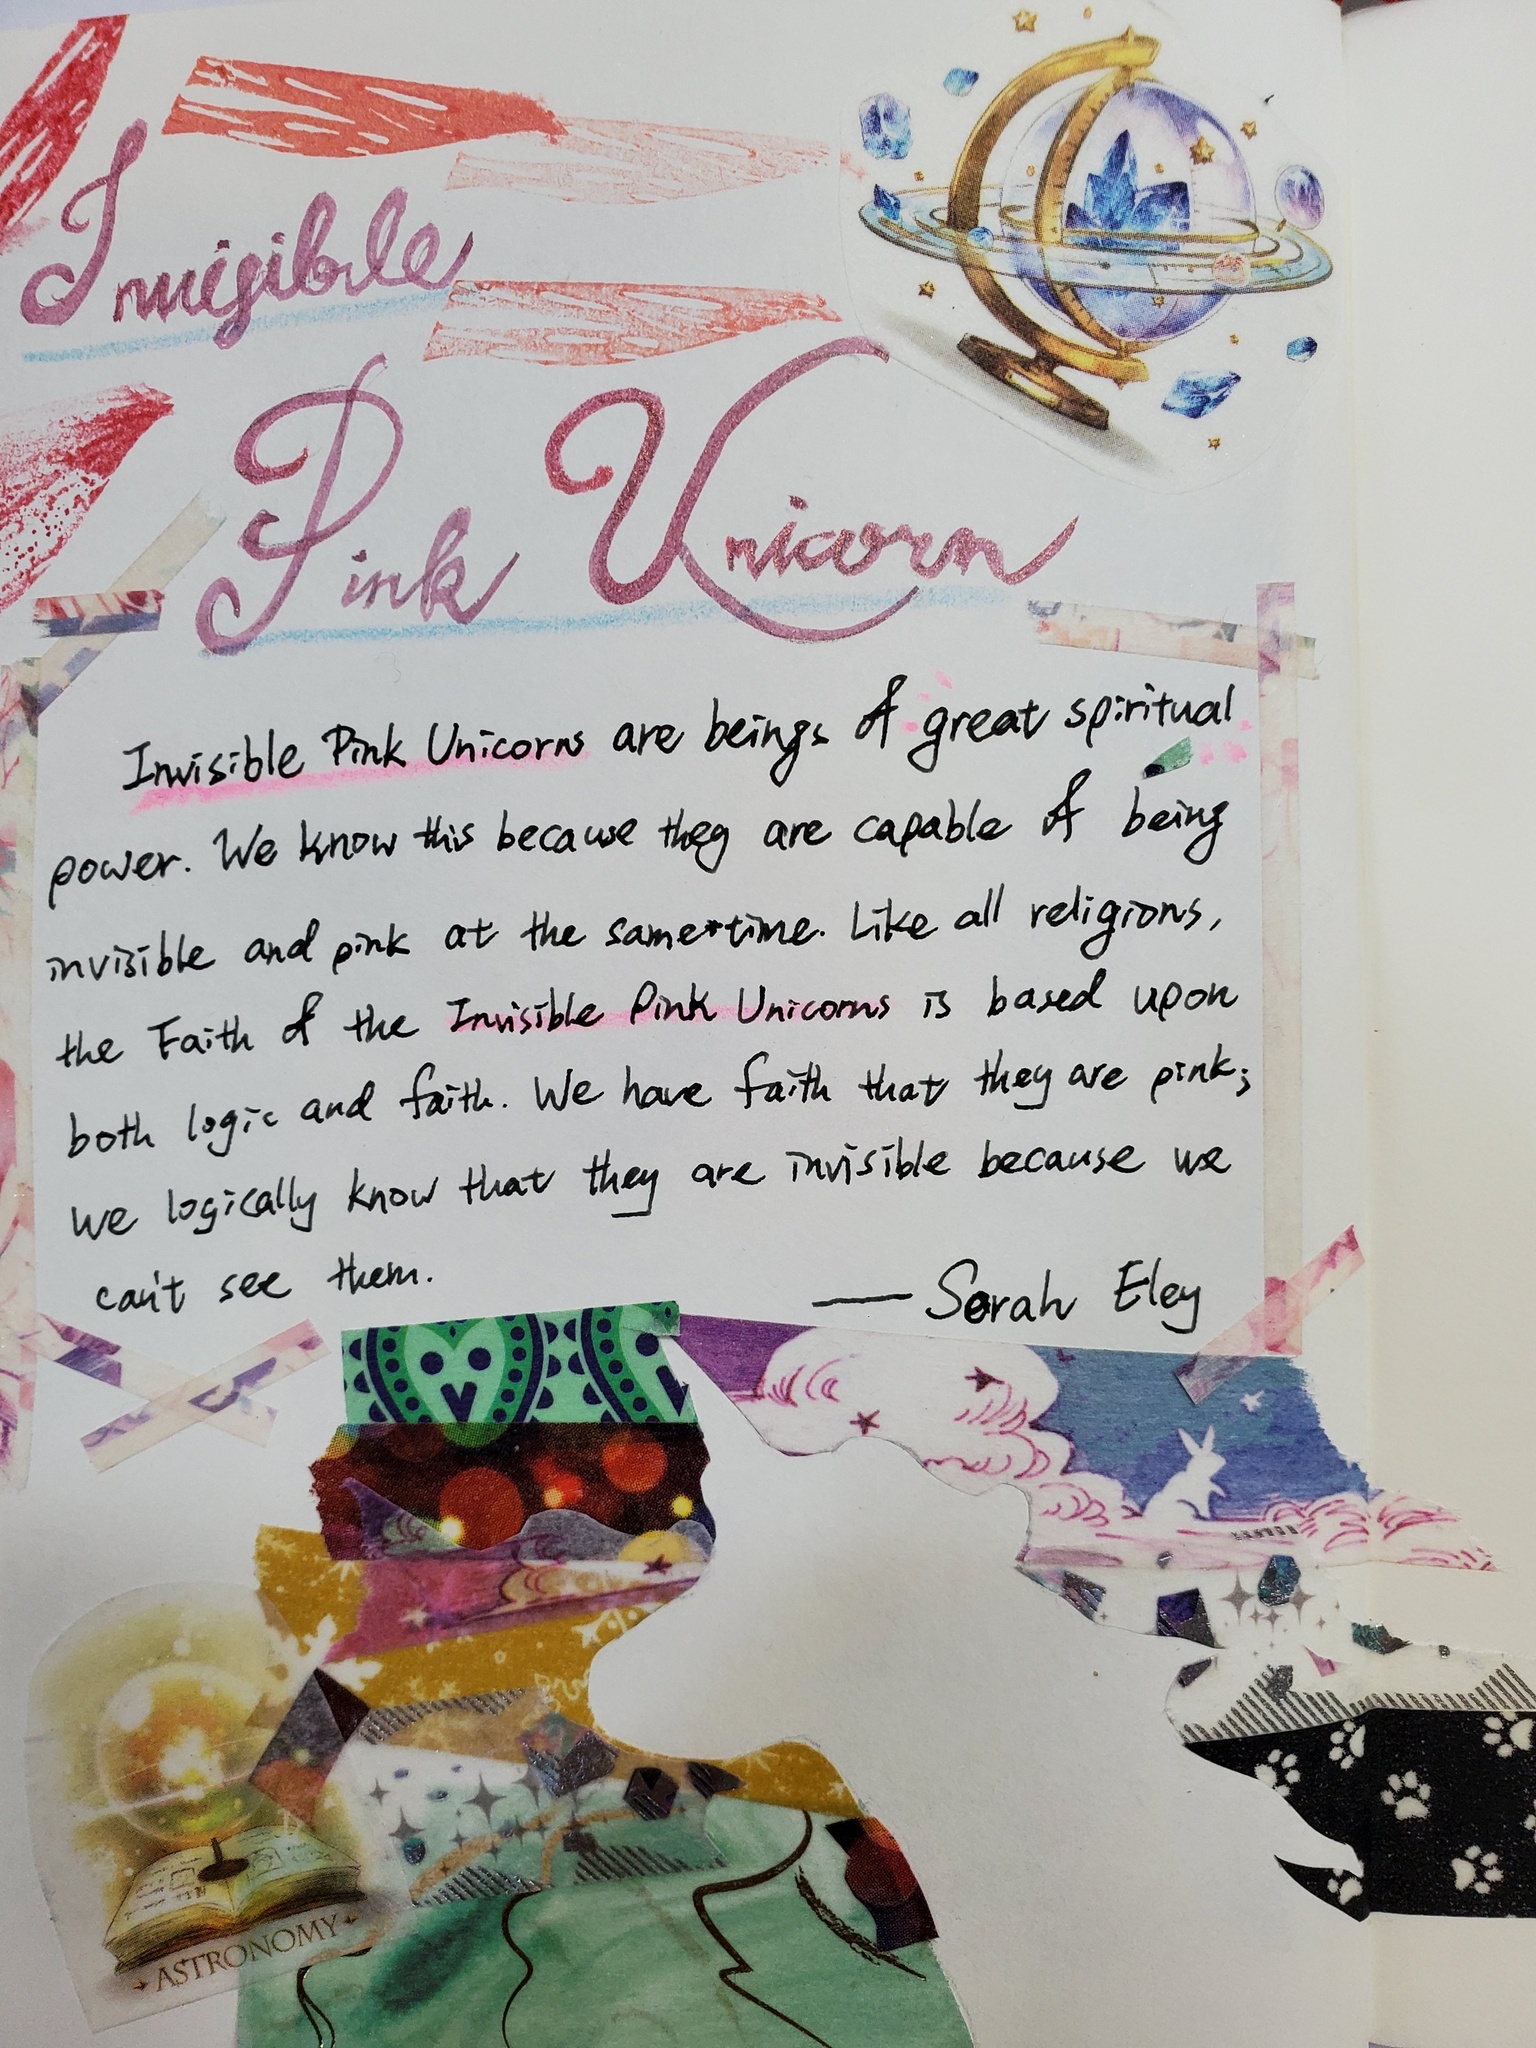 Invisible
Pink Unicorn
Invisible Pink Unicorns are beings of great spiritual
power. We know this because they are capable of being
invisible and pink at the same time. Like all religions,
the Faith of the Invisible Pink Unicorns is based upon
both logic and faith. We have faith that they are pink;
we logically know that they are invisible because we
can't see them.
— Serah Eley
ASTRONOMY